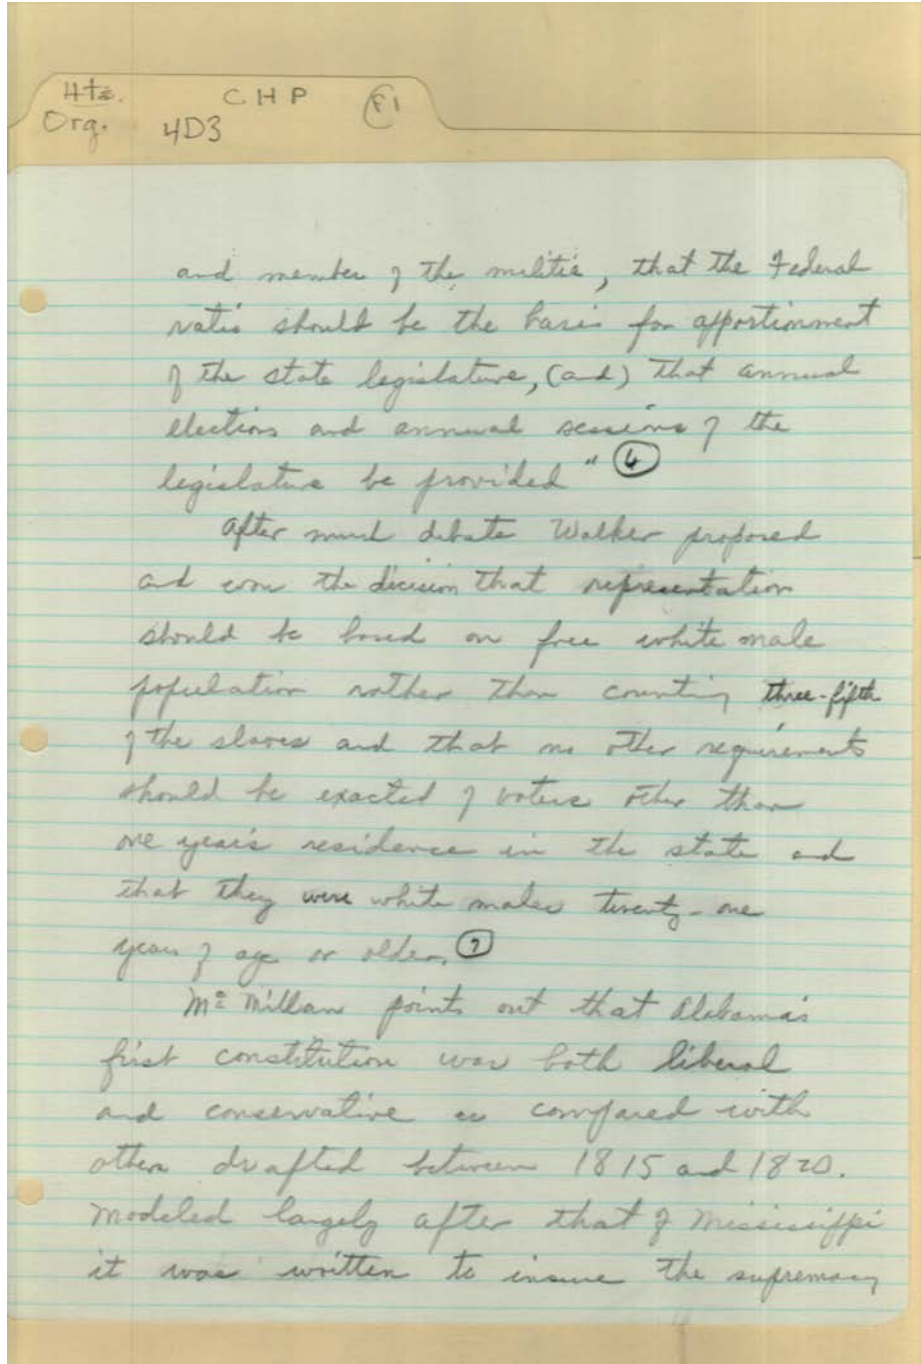 Hts. CHP F1
Org. 4D3
and member of the militia, that the Federal
ratio should be the basis for apportionment
of the state legislature, (and) that annual
elections and annual sessions of the
legislature be provided" 6
After much debate Walker proposed
and won the decision that representation
should be based on free white male
population rather than counting three-fifth
of the slaves and that no other requirements
should be exacted of voters other than
one year's residence in the state and
that they were white males twenty-one
years of age or older. 7
McMillan points out that Alabama's
first constitution was both liberal
and conservative as compared with
others drafted between 1815 and 1820.
Modeled largely after that of Mississippi
it was written to insure the supremacy